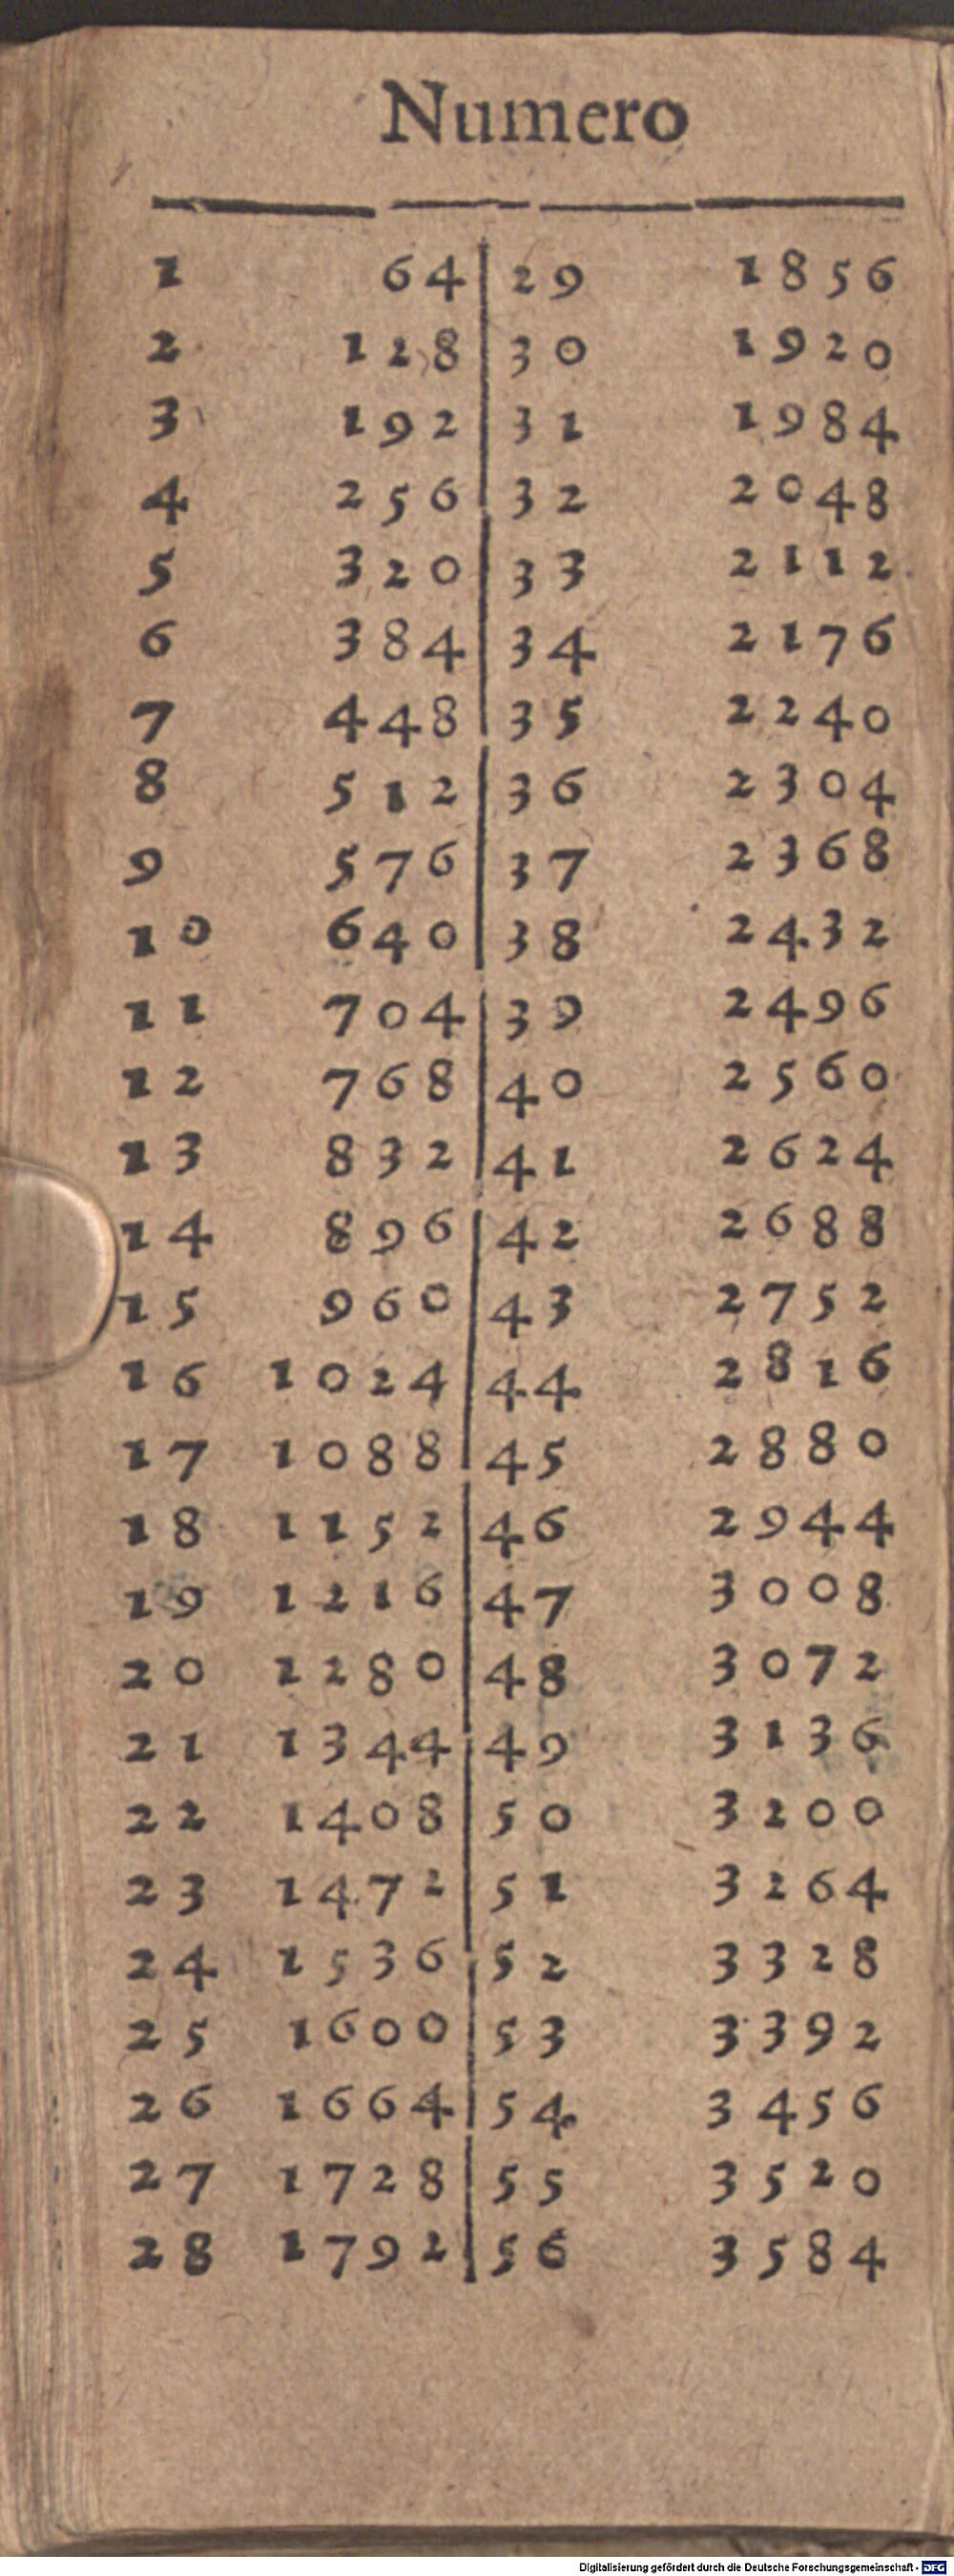 Numero
1 64 29 1856
2 128 30 1920
3 192 31 1984
4 256 32 2048
5 320 33 2112
6 384 34 2176
7 448 35 2240
8 512 36 2304
9 576 37 2368
10 640 38 2432
11 704 39 2496
12 768 40 2560
13 832 41 2624
14 896 42 2688
15 960 43 2752
16 1024 44 2816
17 1088 45 2880
18 1152 46 2944
19 1216 47 3008
20 1280 48 3072
21 1344 49 3136
22 1408 50 3200
23 1472 51 3264
24 1536 52 3328
25 1600 53 3392
26 1664 54 3456
27 1728 55 3520
28 1792 56 3584
Digitalisierung gefördert durch die Deutsche Forschungsgemeinschaft - DFG